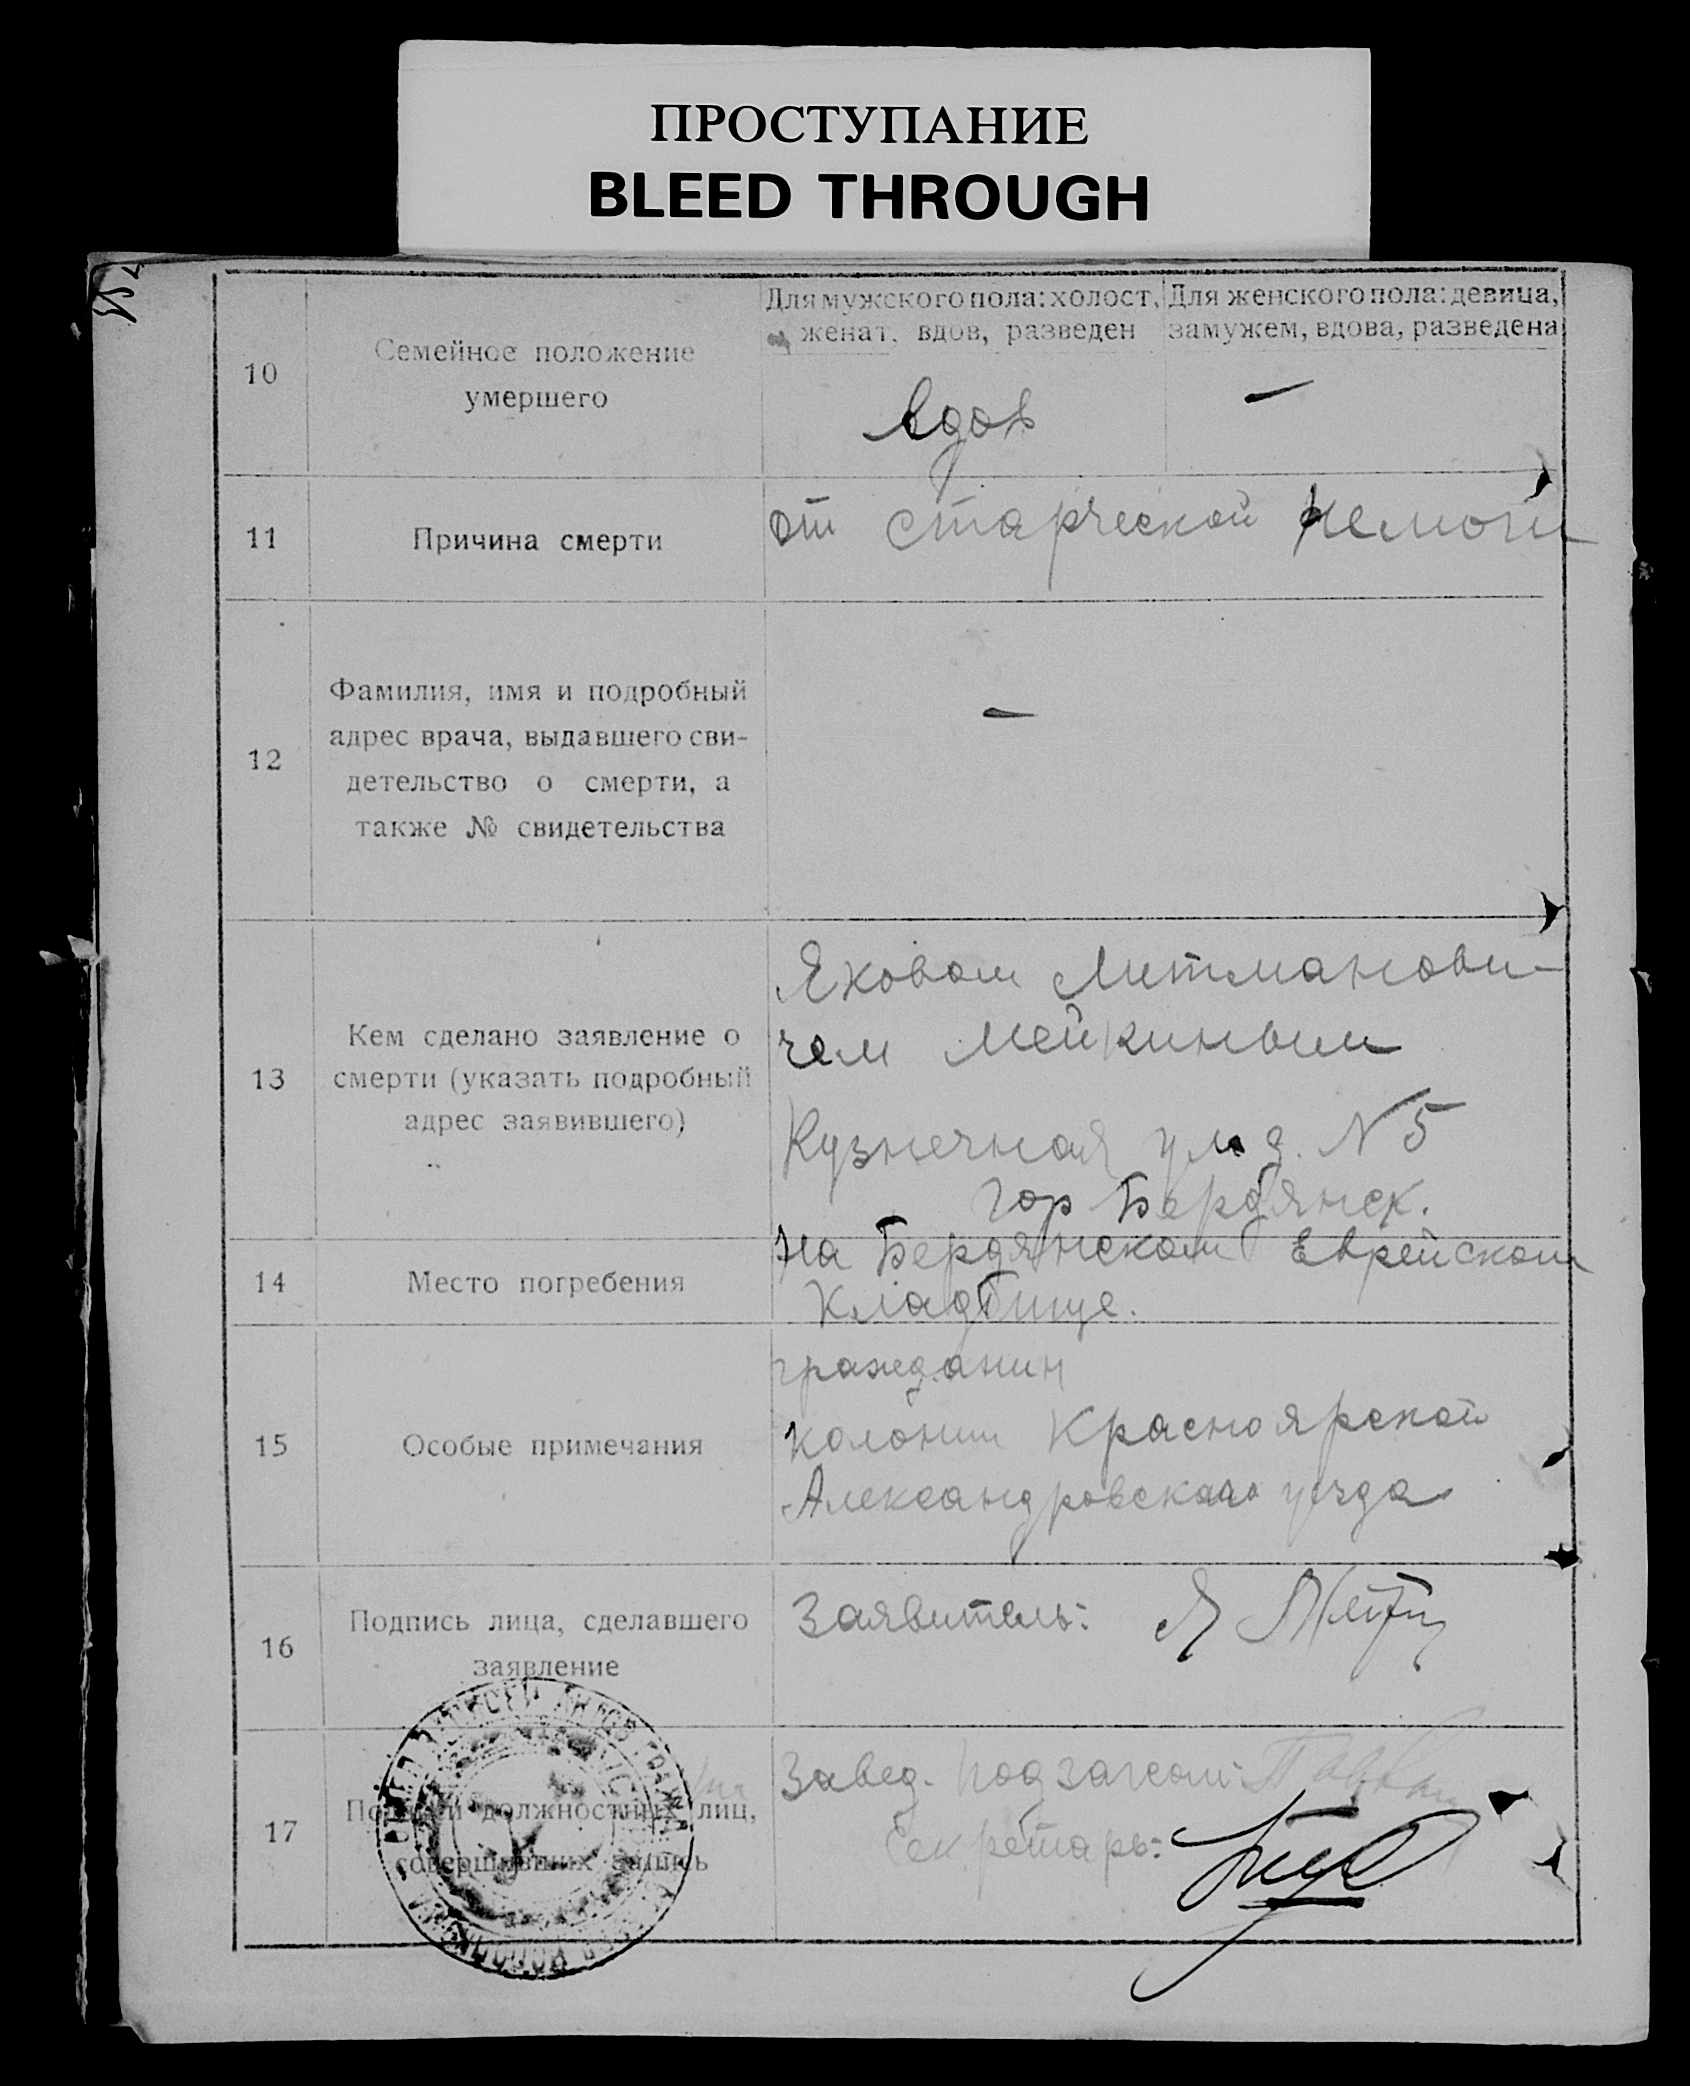 ПРОСТУПАНИЕ
BLEED THROUGH
10
Семейное положение
умершего
Для мужского пола: холост,
женат, вдов, разведен
Для женского пола: девица,
замужем, вдова, разведена
вдов
—
11
Причина смерти
от старческой немощи
12
Фамилия, имя и подробный
адрес врача, выдавшего сви-
детельство о смерти, а
также № свидетельства
—
13
Кем сделано заявление о
смерти (указать подробный
адрес заявившего)
Яковом Литманови-
чем Мейкиным
Кузнечная ул д. N 5
гор Бердянск.
14
Место погребения
на Бердянском Еврейском
Кладбище.
15
Особые примечания
гражданин
колонии Красноярской
Александровского уезда
16
Подпись лица, сделавшего
заявление
Заявитель: Я
17
должностных лиц,
совершивших запись
Завед. подзагсом:
Секретарь: